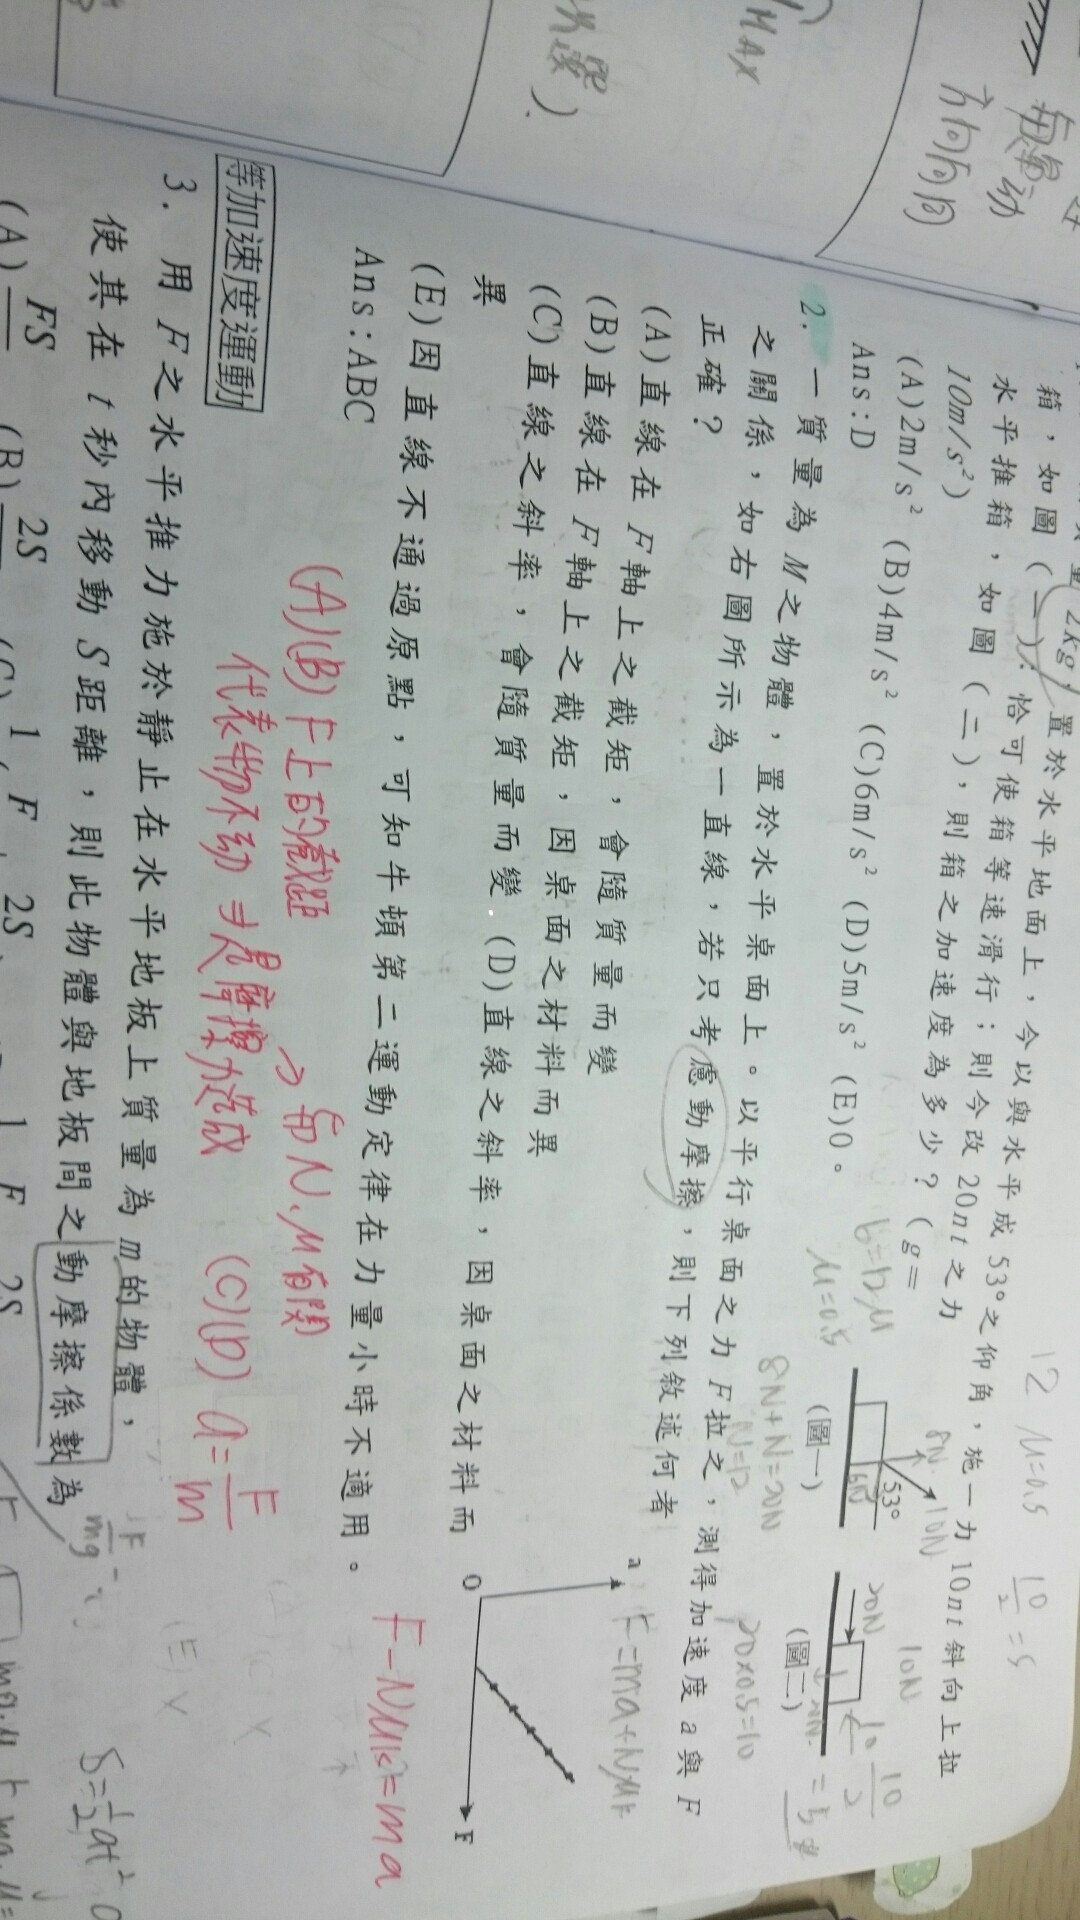 每單
動
方向同
MAX
箱，如圖(一)．恰可使箱等速滑行；則今改 20nt 之力
量 2kg 置於水平地面上，今以與水平成 53°之仰角，施一力 10nt 斜向上拉
水平推箱，如圖(二)，則箱之加速度為多少？(g=
10m/s²)
(A)2m/s² (B)4m/s² (C)6m/s² (D)5m/s² (E)0。
Ans:D
12 μ=0.5
10/2=5
μ=0.5
8N+N=20N
N=12
20×0.5=10
8N
10N
53°
6N
(圖一)
20N
10N
10
10/2
=5#
(圖二)
2. 一質量為 M 之物體，置於水平桌面上。以平行桌面之力 F 拉之，測得加速度 a 與 F
之關係，如右圖所示為一直線，若只考慮動摩擦，則下列敘述何者
正確？
(A)直線在 F 軸上之截矩，會隨質量而變
(B)直線在 F 軸上之截矩，因桌面之材料而異
(C)直線之斜率，會隨質量而變 (D)直線之斜率，因桌面之材料而
異
(E)因直線不通過原點，可知牛頓第二運動定律在力量小時不適用。
Ans:ABC
a
O
F
F=ma+Nμk
F-Nμk=ma
(A)(B) F上的截距
代表物不動⇒是摩擦力造成
→和N、μ有關
(C)(D) a=F/m
等加速度運動
3. 用 F 之水平推力施於靜止在水平地板上質量為 m 的物體，
使其在 t 秒內移動 S 距離，則此物體與地板間之動摩擦係數為
S=1/2at²
(A) FS
(B) 2S
1 F 2S
1 F 2S